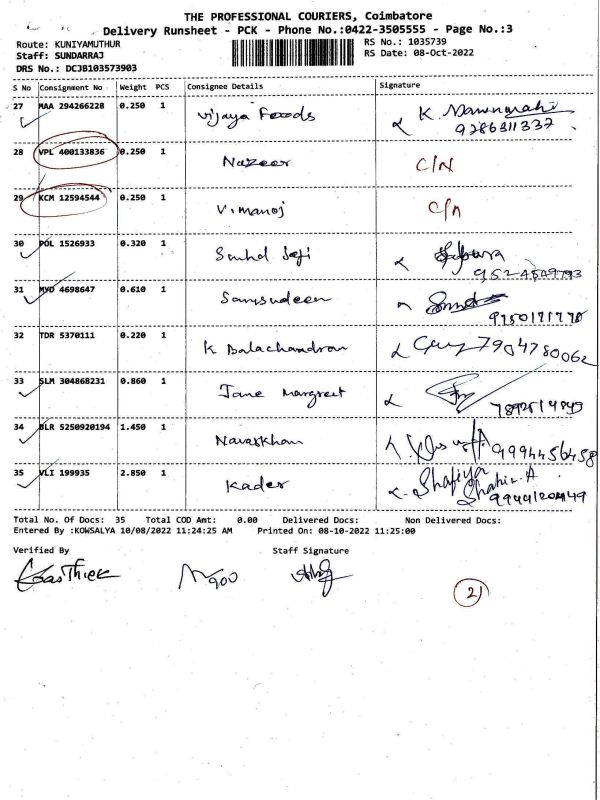 THE PROFESSIONAL COURIERS, Coimbatore
Delivery Runsheet - PCK - Phone No.:0422-3505555 - Page No.:3
Route: KUNIYAMUTHUR RS No.: 1035739
Staff: SUNDARRAJ RS Date: 08-Oct-2022
DRS No.: DCJB103573903
S No Consignment No Weight PCS Consignee Details Signature
27 MAA 294266228 0.250 1 Vijaya Foods K
9286311337
28 VPL 400133836 0.250 1 Nazeer C/N
29 KCM 12594544 0.250 1 V.manoj C/N
30 POL 1526933 0.320 1
9524509793
31 MYD 4698647 0.610 1 Samsudeen
9750171770
32 TDR 5370111 0.220 1 K Balachandran 7904780062
33 SLM 304868231 0.860 1 Jane Margreet
34 BLR 5250920194 1.450 1 Navaskhan 9994456458
35 VLI 199935 2.850 1 Kader Shajiya
Total No. Of Docs: 35 Total COD Amt: 0.00 Delivered Docs: Non Delivered Docs:
Entered By :KOWSALYA 10/08/2022 11:24:25 AM Printed On: 08-10-2022 11:25:00
Verified By Staff Signature
21